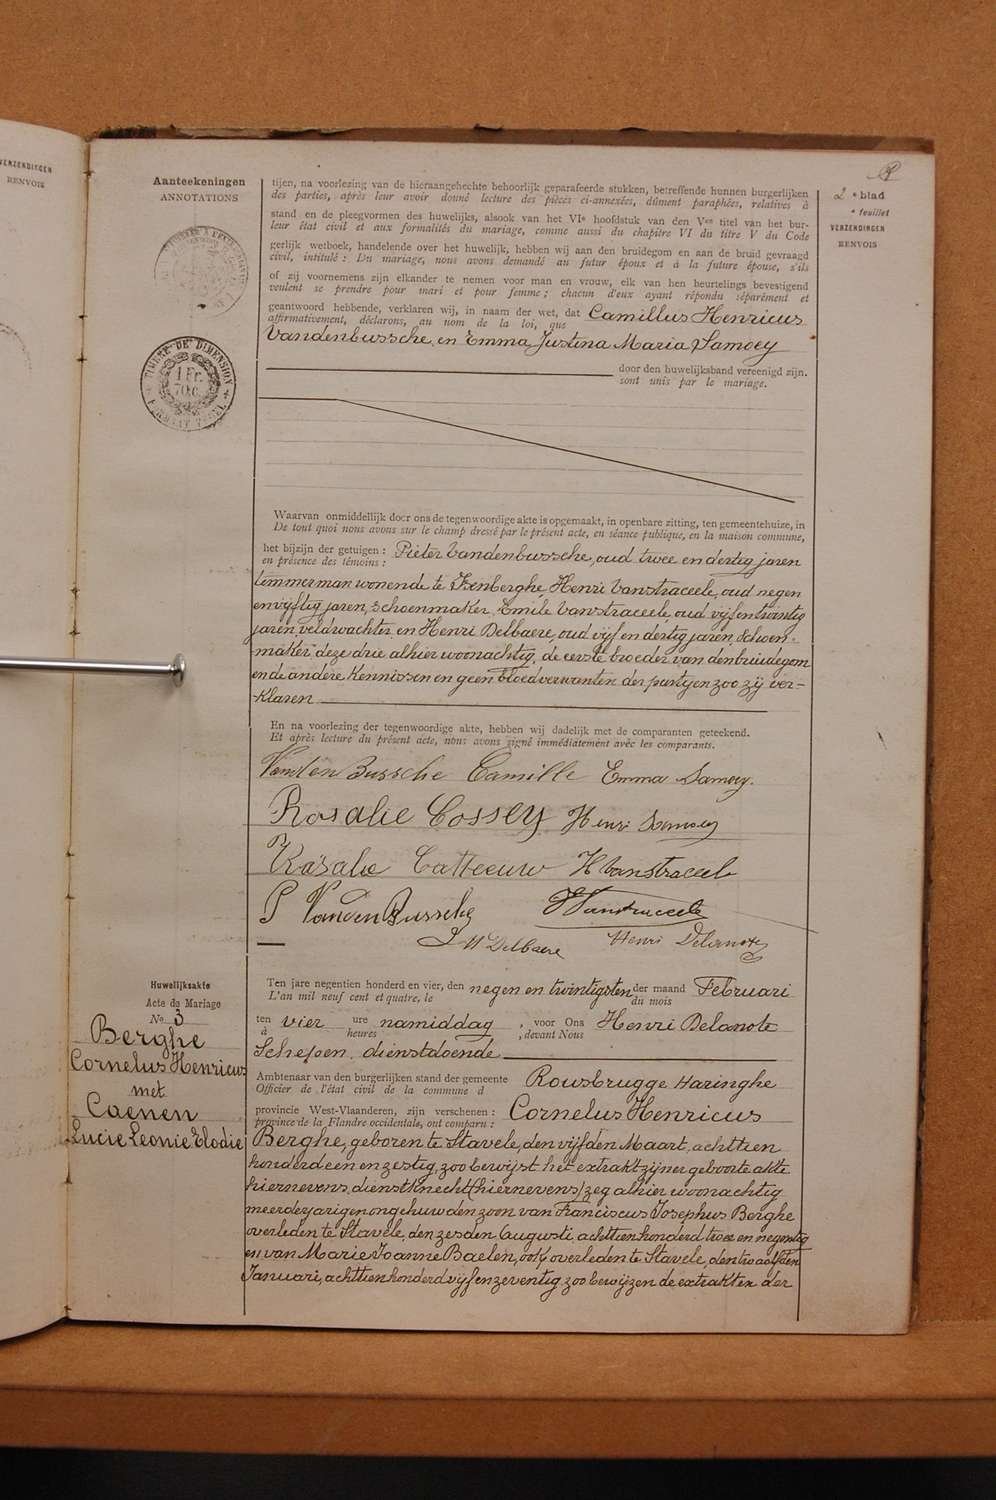 VERZENDINGEN
RENVOIS
Aanteekeningen
ANNOTATIONS
TIMBRE DE DIMENSION
1 Fr.
70 c.
FORMAAT ZEGEL
2e blad
e feuillet
VERZENDINGEN
RENVOIS
tijen, na voorlezing van de hieraangehechte behoorlijk geparafeerde stukken, betreffende hunnen burgerlijken
des parties, après leur avoir donné lecture des pièces ci-annexées, dûment paraphées, relatives à
stand en de pleegvormen des huwelijks, alsook van het VIe hoofdstuk van den Ven titel van het bur-
leur état civil et aux formalités du mariage, comme aussi du chapitre VI du titre V du Code
gerlijk wetboek, handelende over het huwelijk, hebben wij aan den bruidegom en aan de bruid gevraagd
civil, intitulé : Du mariage, nous avons demandé au futur époux et à la future épouse, s'ils
of zij voornemens zijn elkander te nemen voor man en vrouw, elk van hen beurtelings bevestigend
veulent se prendre pour mari et pour femme ; chacun d'eux ayant répondu séparément et
geantwoord hebbende, verklaren wij, in naam der wet, dat Camillus Henricus
affirmativement, déclarons, au nom de la loi, que
Vandenbussche, en Emma Justina Maria Samoey
door den huwelijksband vereenigd zijn.
sont unis par le mariage.
Waarvan onmiddellijk door ons de tegenwoordige akte is opgemaakt, in openbare zitting, ten gemeentehuize, in
De tout quoi nous avons sur le champ dressé par le présent acte, en séance publique, en la maison commune,
het bijzijn der getuigen : Pieter Vandenbussche, oud twee en dertig jaren
en présence des témoins :
timmerman wonende te Isenberghe, Henri Vanstraceele, oud negen
en vijftig jaren, schoenmaker, Emile Vanstraceele, oud vijf en twintig
jaren, veldwachter en Henri Delbaere, oud vijf en dertig jaren, schoen-
maker deze drie alhier woonachtig, de eerste broeder van den bruidegom
en de andere kennissen en geen bloedverwanten der partijen zoo zij ver-
klaren
En na voorlezing der tegenwoordige akte, hebben wij dadelijk met de comparanten geteekend.
Et après lecture du présent acte, nous avons signé immédiatement avec les comparants.
Vanden Bussche Camille Emma Samoey.
Rosalie Cossey Henri Samoey
Rosalie Catteeuw H Vanstraceele
P Vanden Bussche Vanstraceele
H Delbaere Henri Delanote
Huwelijksakte
Acte de Mariage
No 3
Berghe
Cornelus Henricus
met
Caenen
Lucie Leonie Elodie
Ten jare negentien honderd en vier, den negen en twintigsten der maand Februari
L'an mil neuf cent et quatre, le du mois
ten vier ure namiddag , voor Ons Henri Delanote
à heures , devant Nous
Schepen, dienstdoende
Ambtenaar van den burgerlijken stand der gemeente Rousbrugge Haringhe
Officier de l'état civil de la commune d
provincie West-Vlaanderen, zijn verschenen : Cornelus Henricus
province de la Flandre occidentale, ont comparu :
Berghe, geboren te Stavele, den vijfden Maart, achttien
honderd een en zestig, zoo bewijst het extrakt zijner geboorteakte
hiernevens, dienstknecht (hiernevens) zeg alhier woonachtig
meerderjarigen ongehuwden zoon van Franciscus Josephus Berghe
overleden te Stavele, den zesden Augusti, achttien honderd twee en negentig
en van Marie Joanne Baelen, ook overleden te Stavele, den twaalfden
Januari, achttien honderd vijf en zeventig, zoo bewijzen de extrakten der